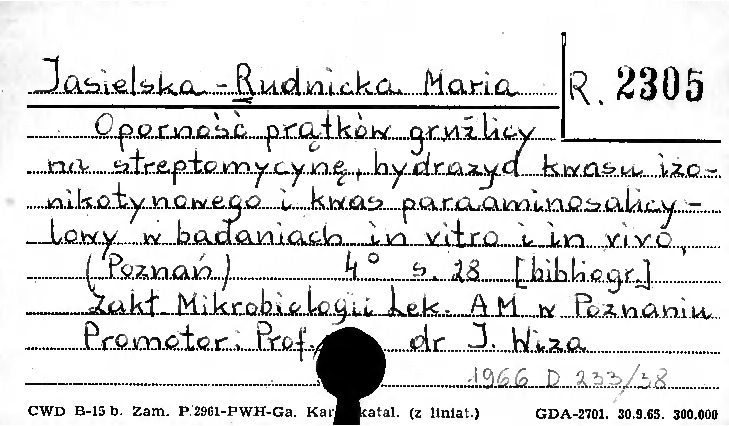 Jasielska-Rudnicka Maria
R. 2305
Oporność prątków gruźlicy
na streptomycynę, hydrazyd kwasu izo-
nikotynowego i kwas paraaminosalicy-
lowy w badaniach in vitro i in vivo,
(Poznań) 4° s. 28 [bibliogr.]
Zakł. Mikrobiologii Lek. AM w Poznaniu
Promotor: Prof. dr J. Wiza
1966 D 233/38
CWD B-15 b. Zam. P. 2961-PWH-Ga. Kar katal. (z liniat.) GDA-2701. 30.9.65. 300.000